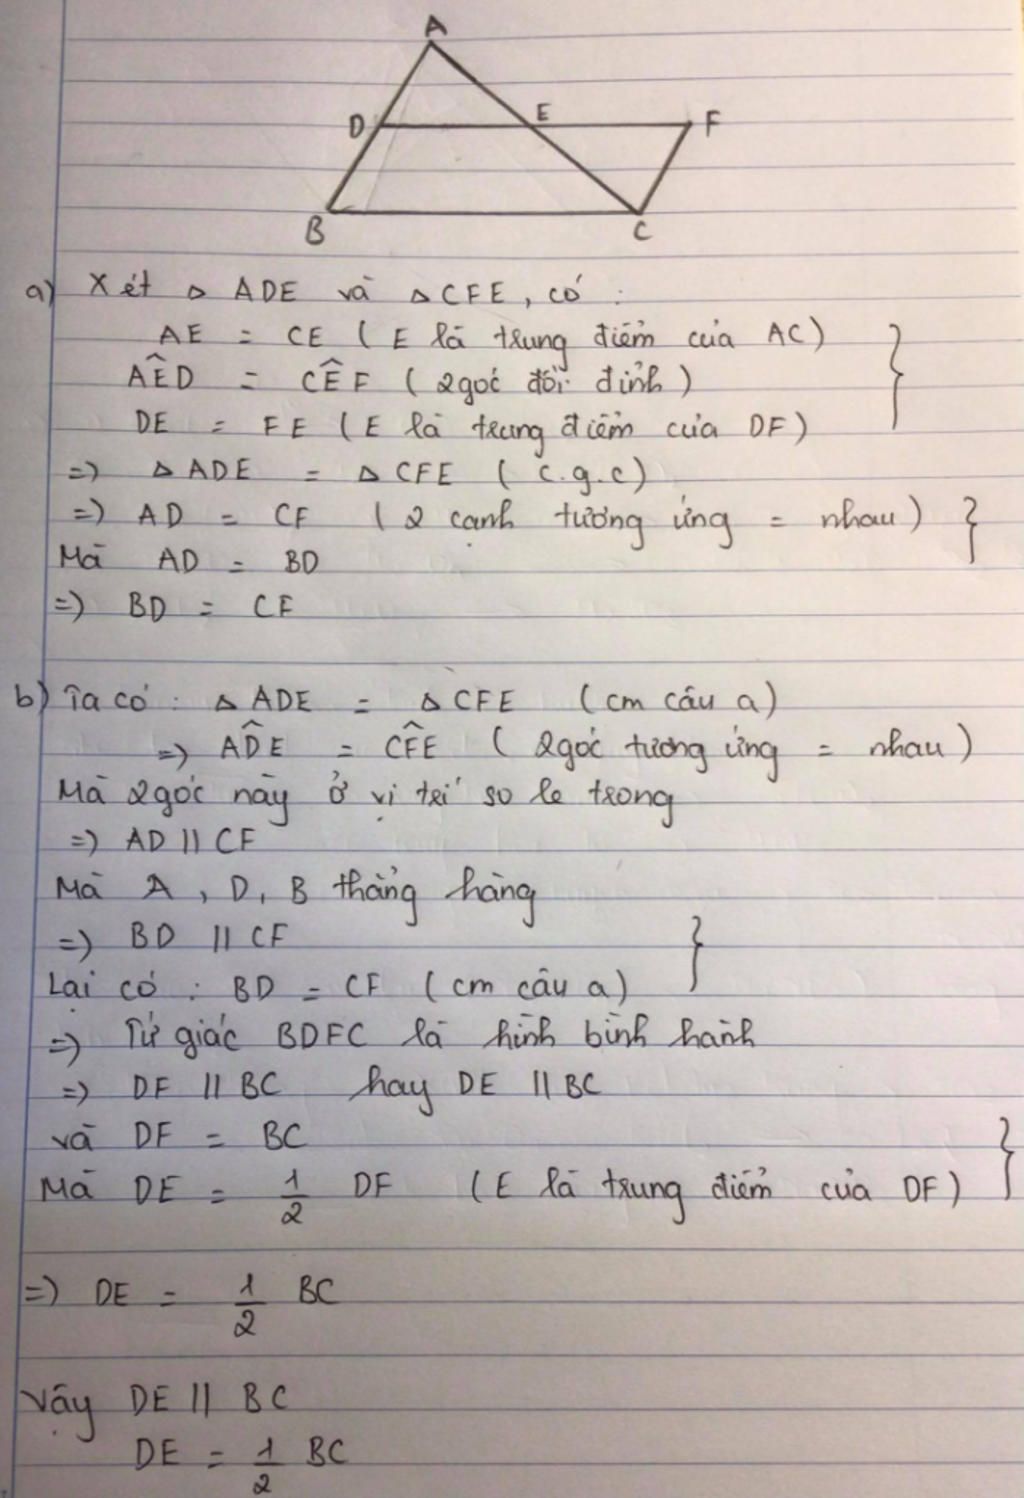 A
D
E
F
B
C
a) Xét △ ADE và △ CFE, có :
AE = CE ( E là trung điểm của AC ) }
AÊD = CÊF ( 2 góc đối đỉnh )
DE = FE ( E là trung điểm của DF )
=> △ ADE = △ CFE ( c.g.c )
=> AD = CF ( 2 cạnh tương ứng = nhau ) }
Mà AD = BD
=> BD = CF
b) Ta có : △ ADE = △ CFE ( cm câu a )
=> AD̂E = CF̂E ( 2 góc tương ứng = nhau )
Mà 2 góc này ở vị trí so le trong
=> AD || CF
Mà A, D, B thẳng hàng
=> BD || CF }
Lại có : BD = CF ( cm câu a )
=> Tứ giác BDFC là hình bình hành
=> DF || BC hay DE || BC
và DF = BC }
Mà DE = 1/2 DF ( E là trung điểm của DF )
=> DE = 1/2 BC
Vậy DE || BC
DE = 1/2 BC